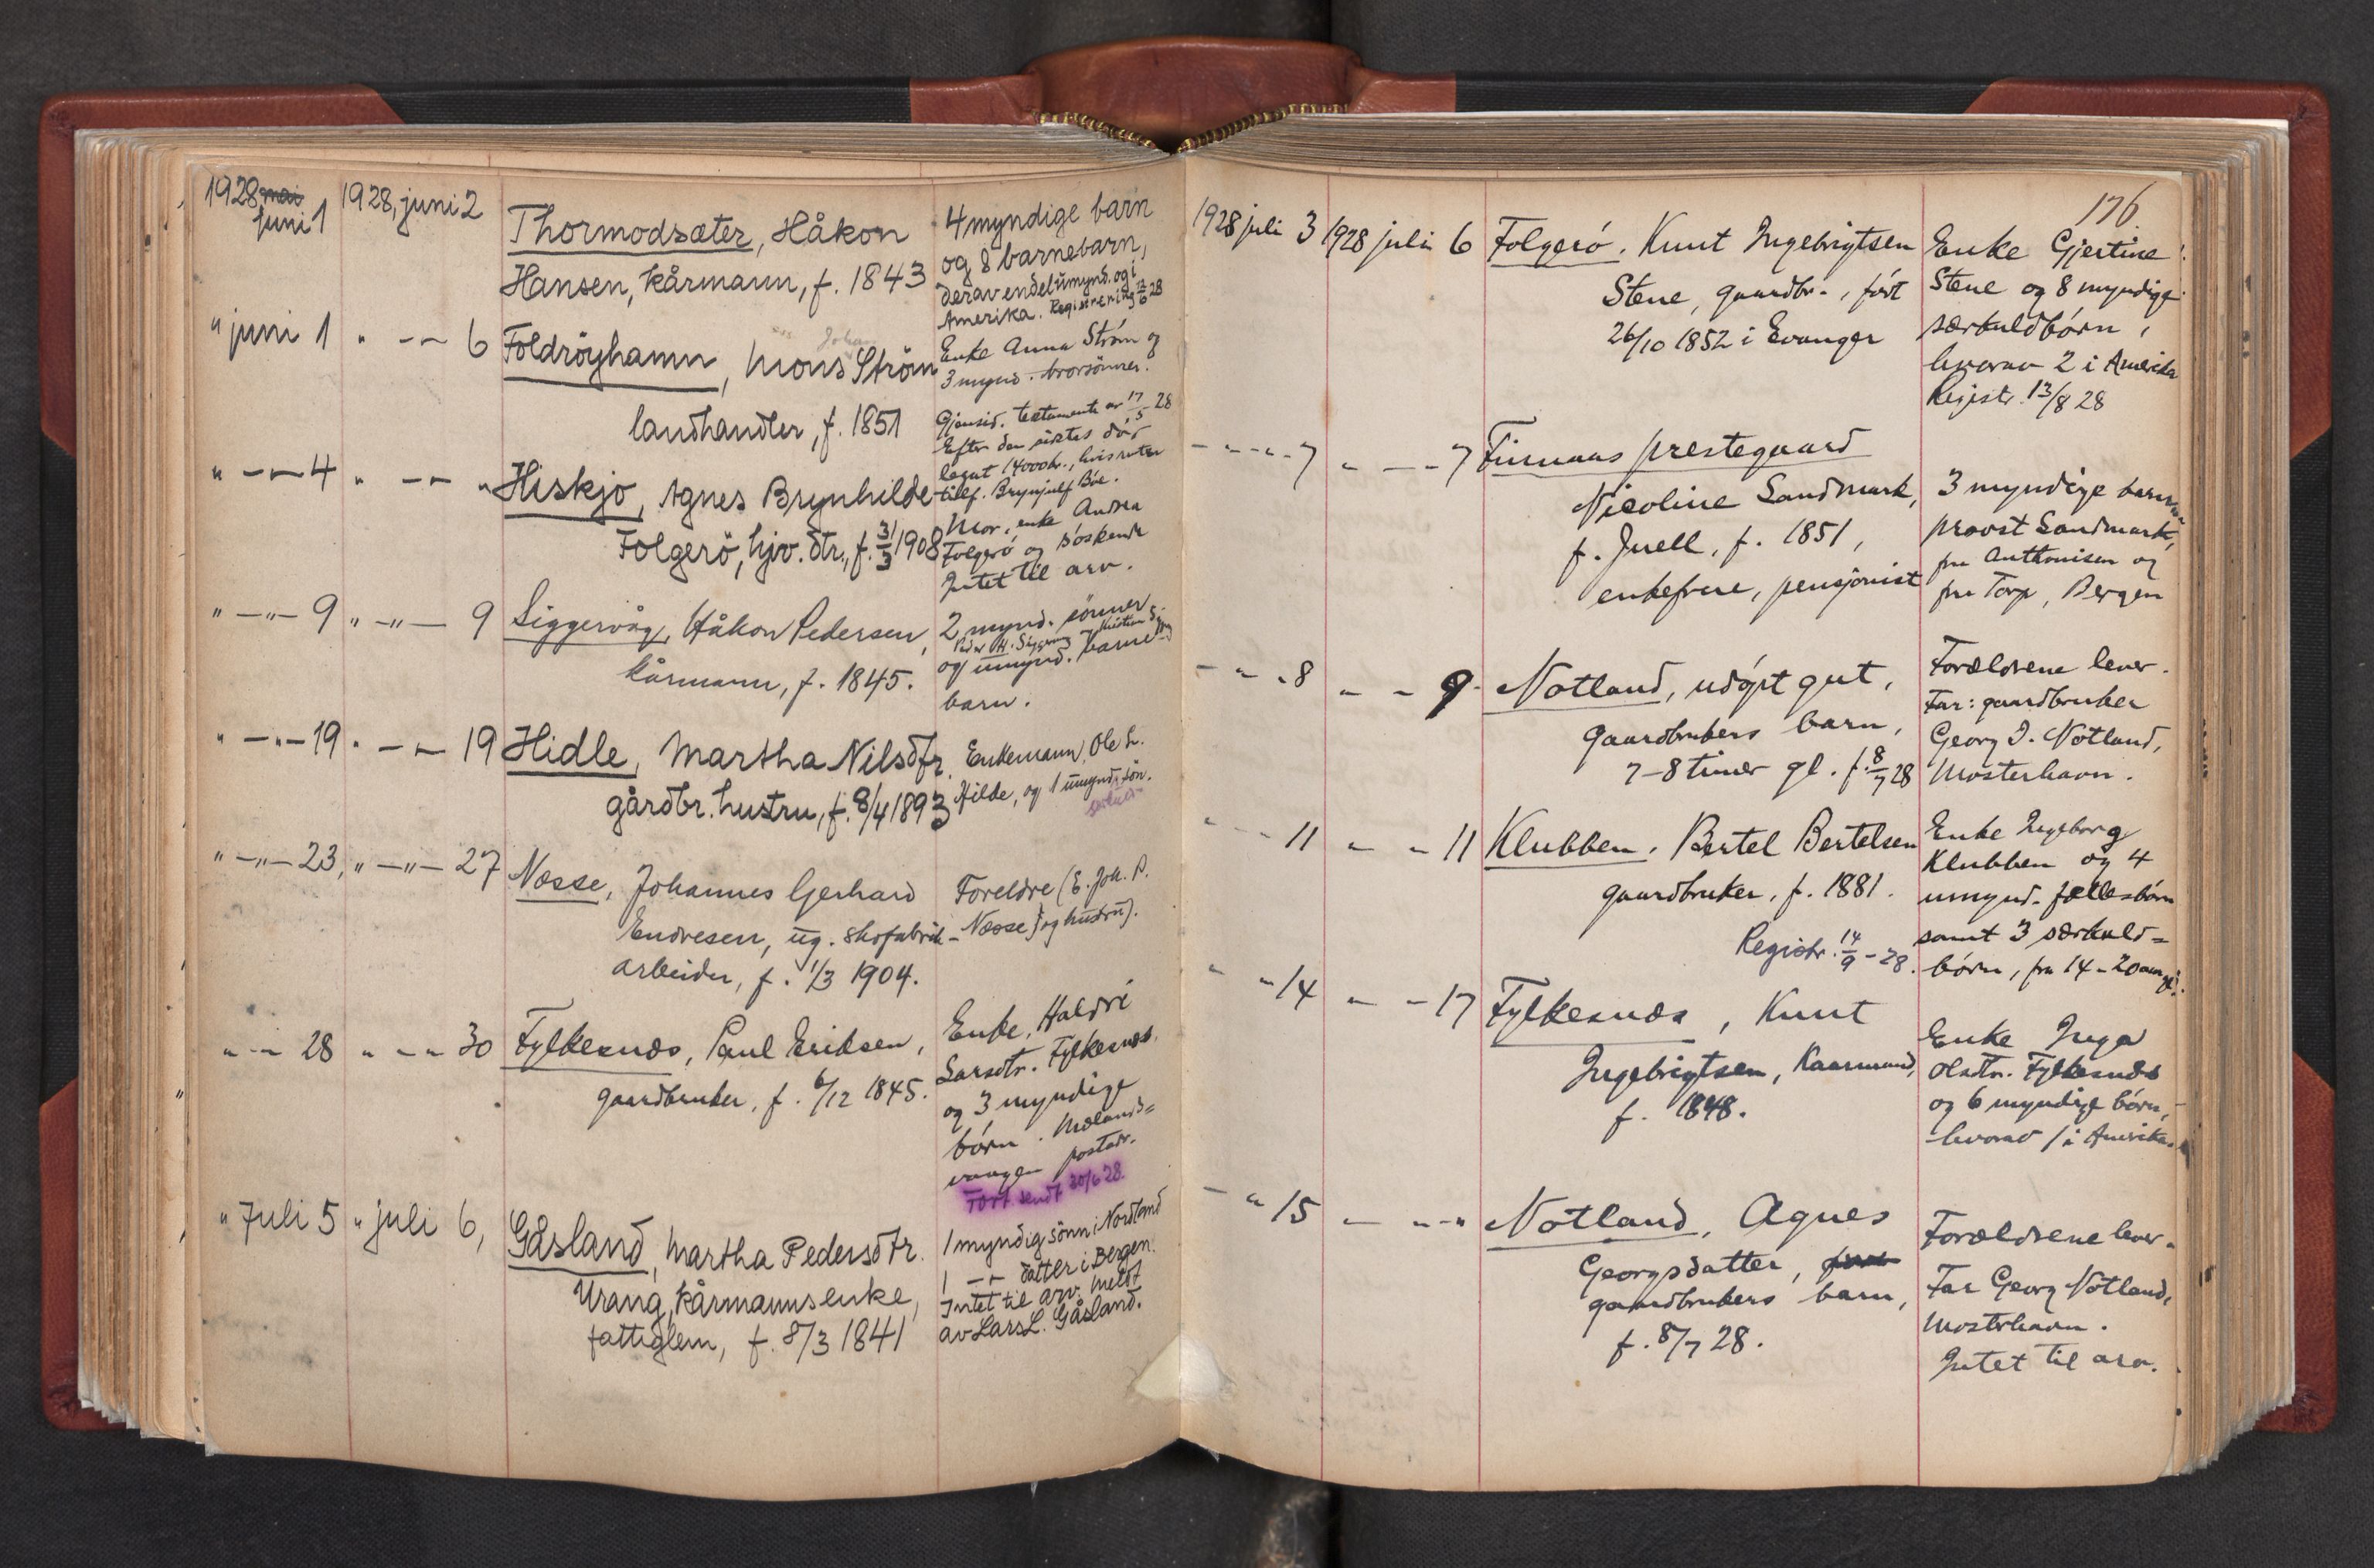 1928 mai juni 1
1928, juni 2
Thormodsæter, Håkon
Hansen, kårmann, f. 1843
4 myndige barn
og 8 barnebarn,
derav endel umynd. og i
Amerika. Registrering 12/6 28
" juni 1 " -"- 6
Foldröyhamn, Mons Johan Ström
landhandler, f. 1851
Enke Anna Ström og
3 mynd. brorsönner.
Gjensid. testamente av 17/5 28
Efter den sidstes död
legat 14000 kr., hvis renter
tilf. Brynjulf Böe.
" -"- 4 " -"- "
Hiskjo, Agnes Brynhilde
Folgerö, hjv. dtr., f. 3/3 1908
Mor, enke Andrea
Folgerö og söskende
Intet til arv.
" -"- 9 " -"- 9
Siggervåg, Håkon Pedersen,
kårmann, f. 1845.
2 mynd. sönner
og umynd. barne
barn.
" -"- 19 " -"- 19
Hidle, Martha Nilsdtr.
gårdbr. hustru, f. 8/4 1893
Enkemann, Ole L.
Hilde, og 1 umynd. sön.
" -"- 23, " -"- 27
Næsse, Johannes Gerhard
Endresen, ug. skofabrik-
arbeider, f. 1/3 1904.
Foreldre (E. Joh. P.
Næsse) og hustru).
" -"- 28 " -"- 30
Fylkesnæs, Paul Eriksen,
gaardbruker, f. 6/12 1845.
Enke, Haldri
Larsdtr. Fylkesnæs
og 3 myndige
börn. Mælands-
vaagen postadr.
Fort. sendt 30/6 28.
" Juli 5 " juli 6,
Gåsland, Martha Pedersdtr.
Urang, kårmannsenke,
fattiglem, f. 8/3 1841
1 myndig sönn i Nordland
1 -"- datter i Bergen.
Intet til arv. Meldt
av Lars L. Gåsland.
176
1928 juli 3
1928 juli 6
Folgerö, Knut Ingebrigtsen
Stene, gaardbr., födt
26/10 1852 i Evanger
Enke Gjertine
Stene og 8 myndige
særkuldbörn,
hvorav 2 i Amerika
Registr. 13/8 28
- " - " - 7 " - - 7
Finnaas prestegaard
Nicoline Sandmark,
f. Juell, f. 1851,
enkefrue, pensjonist
3 myndige barn
provst Sandmark,
fru Anthonisen og
fru Torp, Bergen
- " " 8 " - " 9
Notland, udöpt gut,
gaardbrukers barn,
7-8 timer gl. f. 8/7 28
Forældrene lever.
Far: gaardbruker
Georg J. Notland,
Mosterhavn.
" - 11 " - " 11
Klubben, Bertel Bertelsen
gaardbruker, f. 1881.
Registr. 14/9 - 28.
Enke Ingeborg
Klubben og 4
umynd. fællesbörn
samt 3 særkuld=
börn, fra 14-20 aar gl.
" - 14 " - " 17
Fylkesnæs, Knut
Ingebrigtsen, Kaarmand,
f. 1848.
Enke Inga
Olsdtr. Fylkesnæs
og 6 myndige börn,
hvorav 1 i Amerika.
- " 15 " - " - "
Notland, Agnes
Georgsdatter,
gaardbrukers barn,
f. 8/7 28.
Forældrene lever.
Far Georg Notland,
Mosterhavn.
Intet til arv.